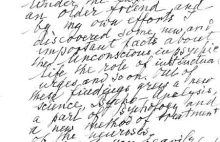 Under the
an older friend and
by my own efforts I
discovered some new and
important facts about
the unconscious in psychic
life the role of instinctual
urges and so on. Out of
these findings grew a new
science, Psycho-Analysis,
a part of psychology and
a new method of treatment
of the neuroses.
heavily